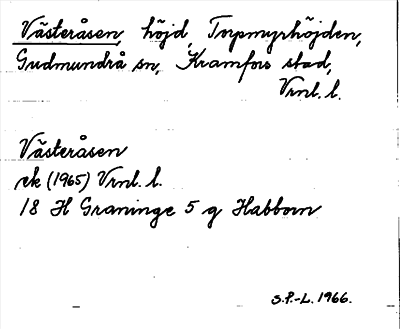 Västeråsen, höjd, Torpmyrhöjden,
Gudmundrå sn, Kramfors stad,
Vrnl. l.
Västeråsen
ek (1965) Vrnl. l.
18 H Graninge 5 g Habborn
S.P.-L. 1966.